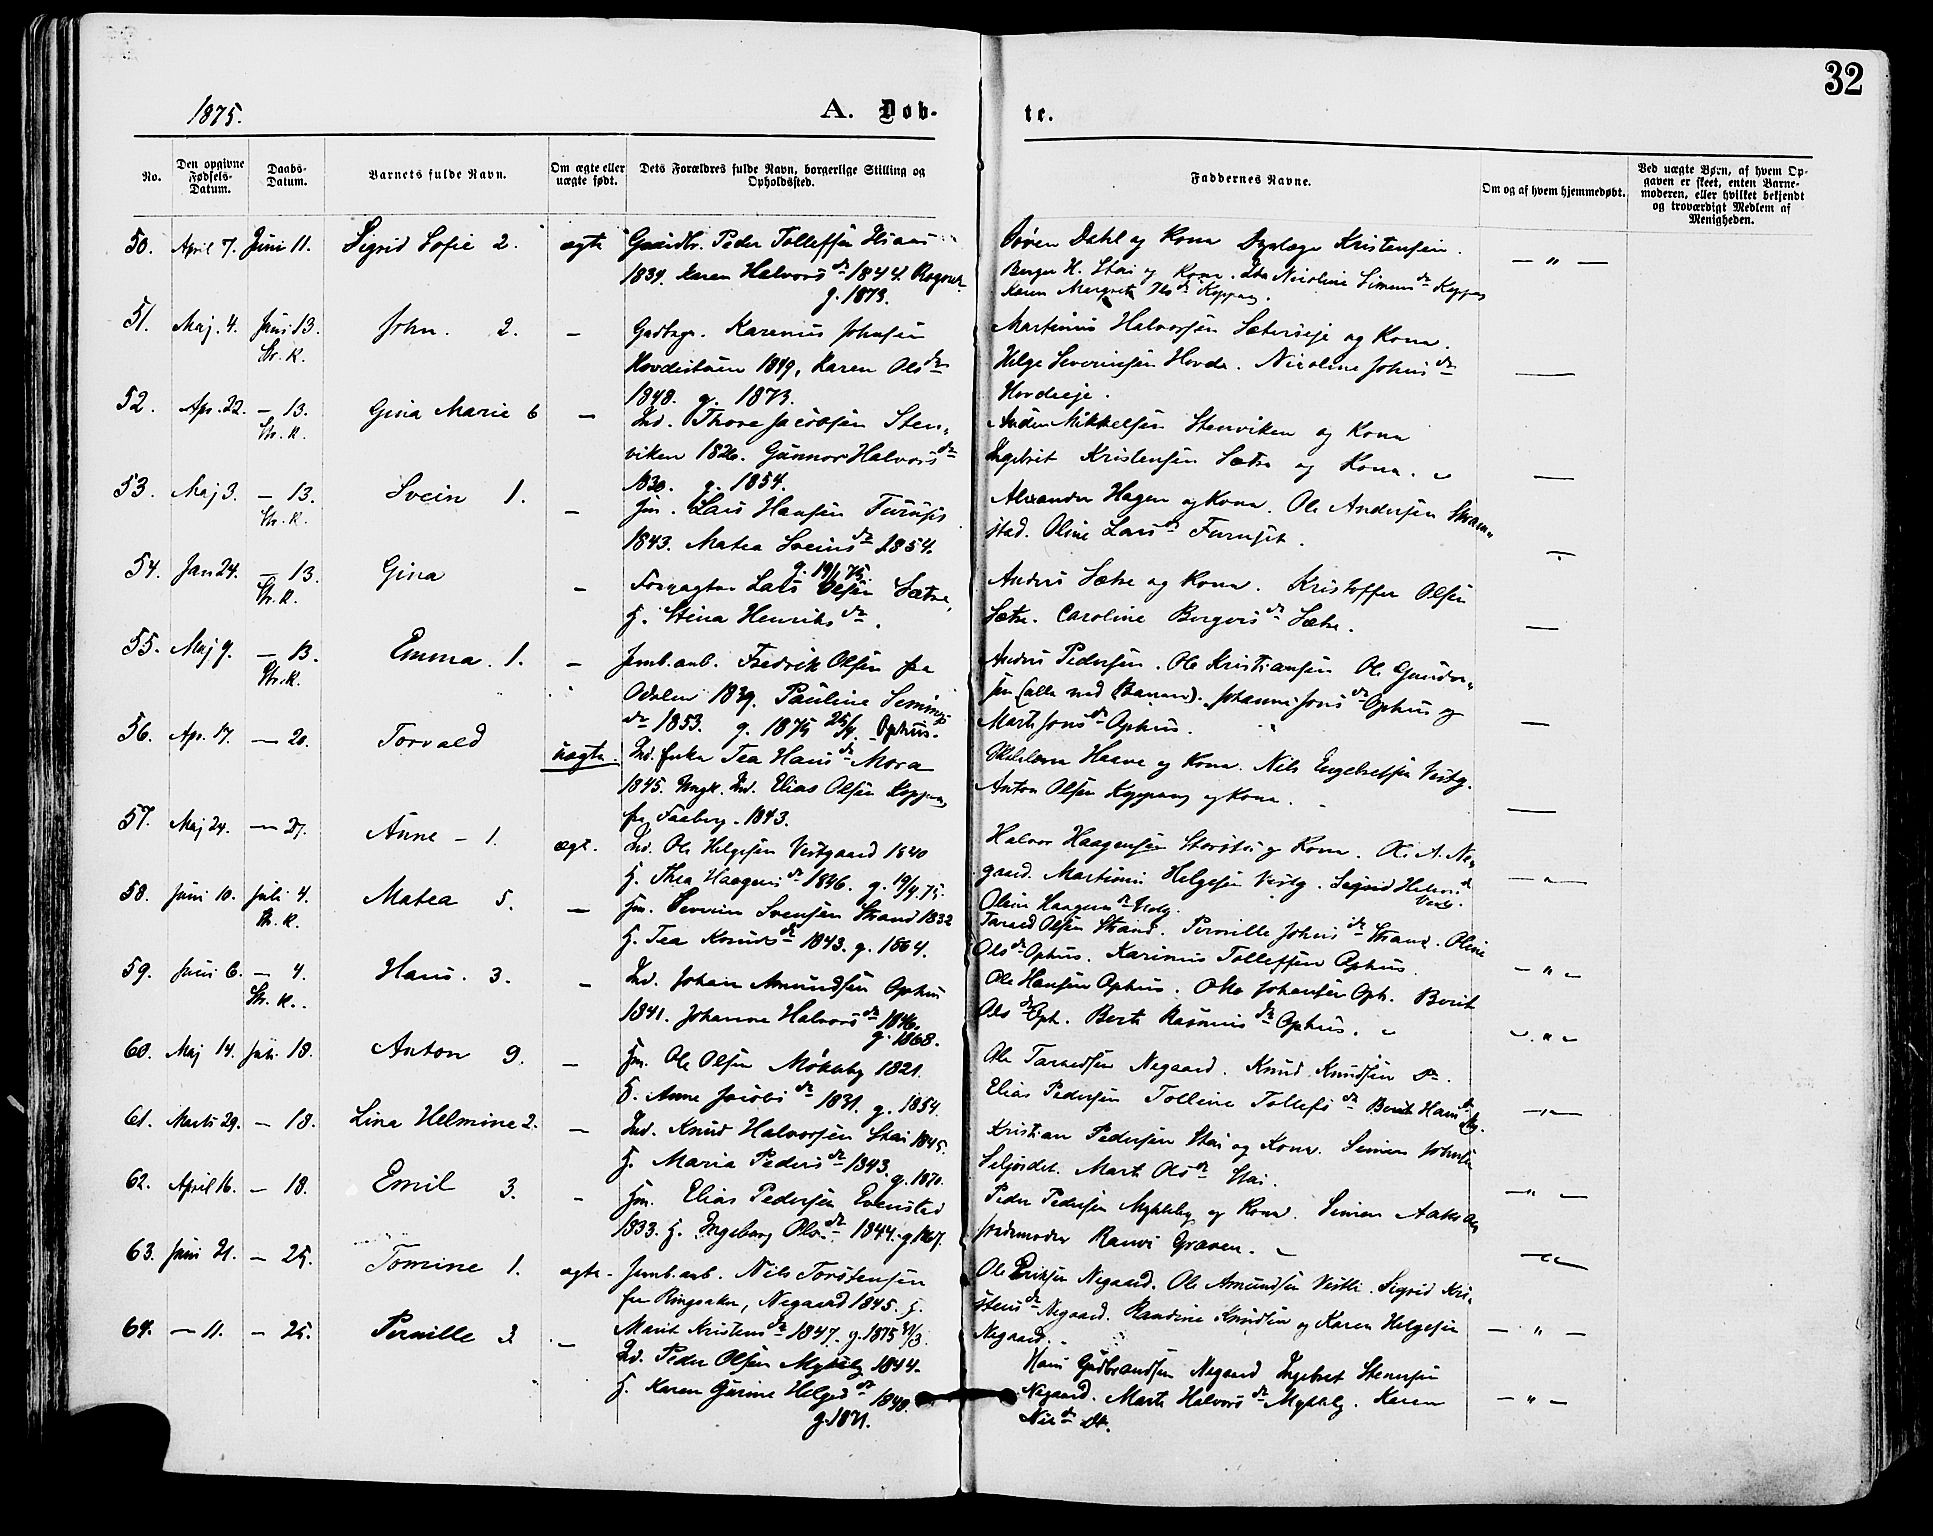 32
1875.
A. Døb-
te.
No.
Den opgivne Fødsels-Datum.
Daabs-Datum.
Barnets fulde Navn.
Om ægte eller uægte født.
Dets Forældres fulde Navn, borgerlige Stilling og Opholdssted.
Faddernes Navne.
Om og af hvem hjemmedøbt.
Ved uægte Børn, af hvem Opgaven er skeet, enten Barnemoderen, eller hvilket bekjendt og troværdigt Medlem af Menigheden.
50. April 7. Juni 11. Sigrid Sofie 2. ægte Peder Tolleffsen
1839. Karen Halvorsdr 1844.
g. 1873.
Søren Dahl og Kone Kristensen.
Berger H. Stai og Kone. Nicoline Simensdr Koppang
Karen Margrete Koppang.
51. Maj. 4. Juni 13. John. 2. — Gaardbgr. Karenius Johnsen
Str. K.
Hovdestuen 1849, Karen Olsdr
1848. g. 1873.
Martinus Halvorsen Sætereje og Kone.
Helge Severinsen Hovda. Nicoline Johnsdr
Hovdeeje.
52. Apr. 22. — 13. Gina Marie 6 — Ind. Thore Jacobsen Sten-
Str. K.
viken 1826. Gunnor Halvorsdr
1830. g. 1854.
Mikkelsen Stenviken og Kone
Ingebret Kristensen Sætre og Kone.
53. Maj 3. — 13. Svein 1. — Lars Hansen Furuset
Str. K.
1843. Matea Sveinsdr 1854.
g. 19/1 75.
Alexander Hagen og Kone. Ole Andersen
stad. Oline Larsdr Furuset.
54. Jan 24. — 13. Gina — Forpagter Lars Olsen Sætre,
Str. K.
H. Stina Henriksdr.
Anders Sætre og Kone. Kristoffer Olsen
Sætre. Caroline Bergersdr Sætre.
55. Maj 9. — 13. Emma. 1. — Jernb.arb. Fredrik Olsen fra
Str. K.
Odalen 1839. Pauline
dr 1853. g. 1875 25/4 Ophus.
Anders Pedersen. Ole Kristiansen Ole Gunder-
sen (alle ved Banen). Johanne Jonsdr Ophus og
Marte Jonsdr Ophus.
56. Apr. 17. — 20. Torvald uægte. Ind. Enke Tea Hansdr Mora
1845. Ungk. Ind. Elias Olsen Koppang
fra Faaberg. 1843.
Haave og Kone. Nils Engebretsen Vestg.
Anton Olsen Koppang og Kone.
57. Maj 24. — 27. Anne — 1. ægt. Ind. Ole Helgesen Vestgaard 1840
H. Thea Haagensdr 1846. g. 19/4 75.
Halvor Haagensen og Kone. Ole A. Ne-
gaard. Martinus Helgesen Vestg. Sigrid
Oline Haagensdr Vestg.
58. Juni 10. Juli 4. Matea 5. — Gm. Svensen Strand 1832
Str. K.
H. Tea Knudsdr 1843. g. 1864.
Tarald Olsen Strand. Pernille Johnsdr Strand. Oline
Olsdr Ophus. Karinus Tolleffsen Ophus.
59. Juni 6. — 4. Hans. 3. — Ind. Johan Amundsen Ophus
Str. K.
1841. Johanne Halvorsdr 1846.
g. 1868.
Ole Hansen Ophus. Johansen Oph. Berit
Olsdr Oph. Berte Rasmusdr Ophus.
60. Maj 14. Juli 18. Anton 9. — Gm. Ole Olsen 1821.
H. Anne Jacobsdr 1831. g. 1854.
Ole Taraldsen Negaard. Knud Knudsen Do.
Elias Pedersen Tolline Tollefsdr Berit Hansdr
61. Marts 29. — 18. Lina Helmine 2. — Ind. Knud Halvorsen Stai 1845.
H. Maria Pedersdr 1843. g. 1870.
Kristian Pedersen Stai og Kone. Simen Johnsen
Marte Olsdr Stai.
62. April 16. — 18. Emil 3. — Gm. Elias Pedersen Evenstad
1833. H. Ingeborg Olsdr 1844. g. 1867.
Peder Pedersen Mykleby og Kone. Simen
Jordemoder Græven.
63. Juni 21. — 25. Tomine 1. ægte. Jernb.arb. Nils Torstensen
fra Ringsaker, Negaard 1845. H.
Marit Kristensdr 1847. g. 1875 21/3.
Ole Eriksen Negaard. Ole Amundsen Vestli. Sigrid Kri-
stensdr Negaard. Randine Knudsen og Karen Helgesen
Negaard.
64. — 11. — 25. Pernille 3. — Ind. Peder Olsen Mykleby 1844.
H. Karen Gurine Helgesdr 1848.
g. 1871.
Hans Gudbrandsen Negaard Ingebret Stensen
Negaard. Marte Halvorsdr Mykleby. Karen
Nilsdr Do.